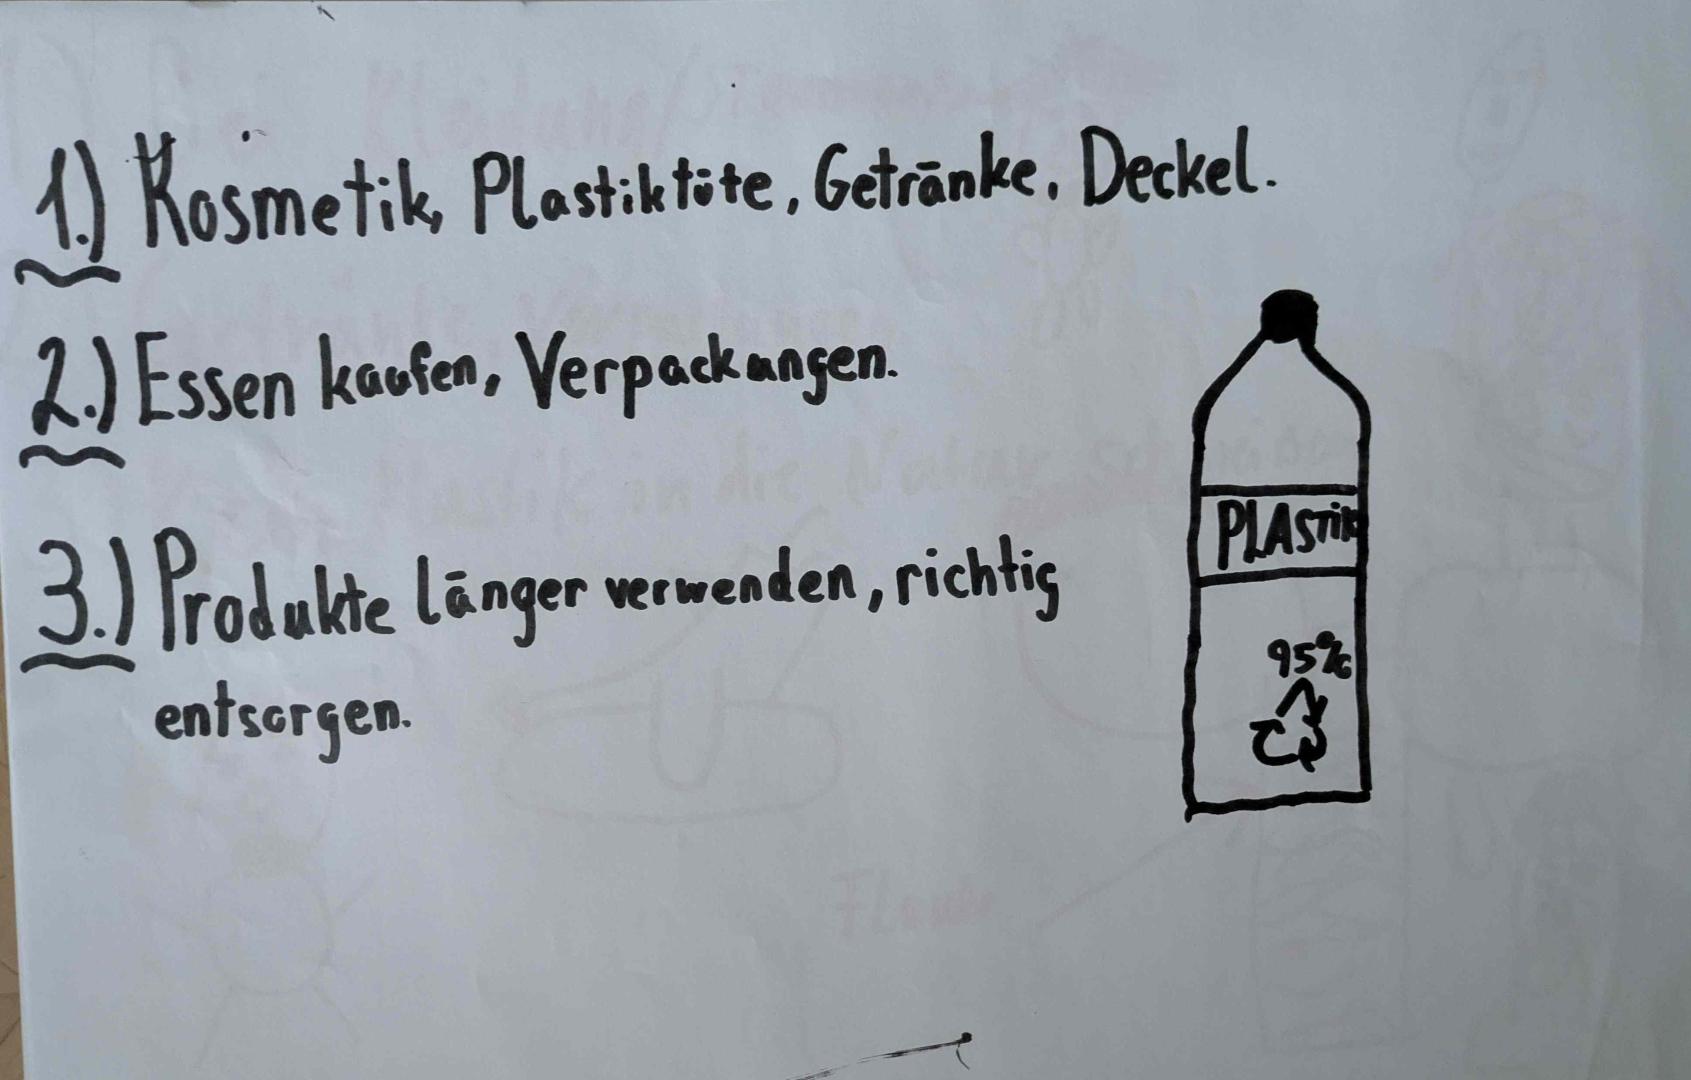 1.) Kosmetik, Plastiktüte, Getränke, Deckel.
2.) Essen kaufen, Verpackungen.
3.) Produkte länger verwenden, richtig
entsorgen.
PLASTIK
95%